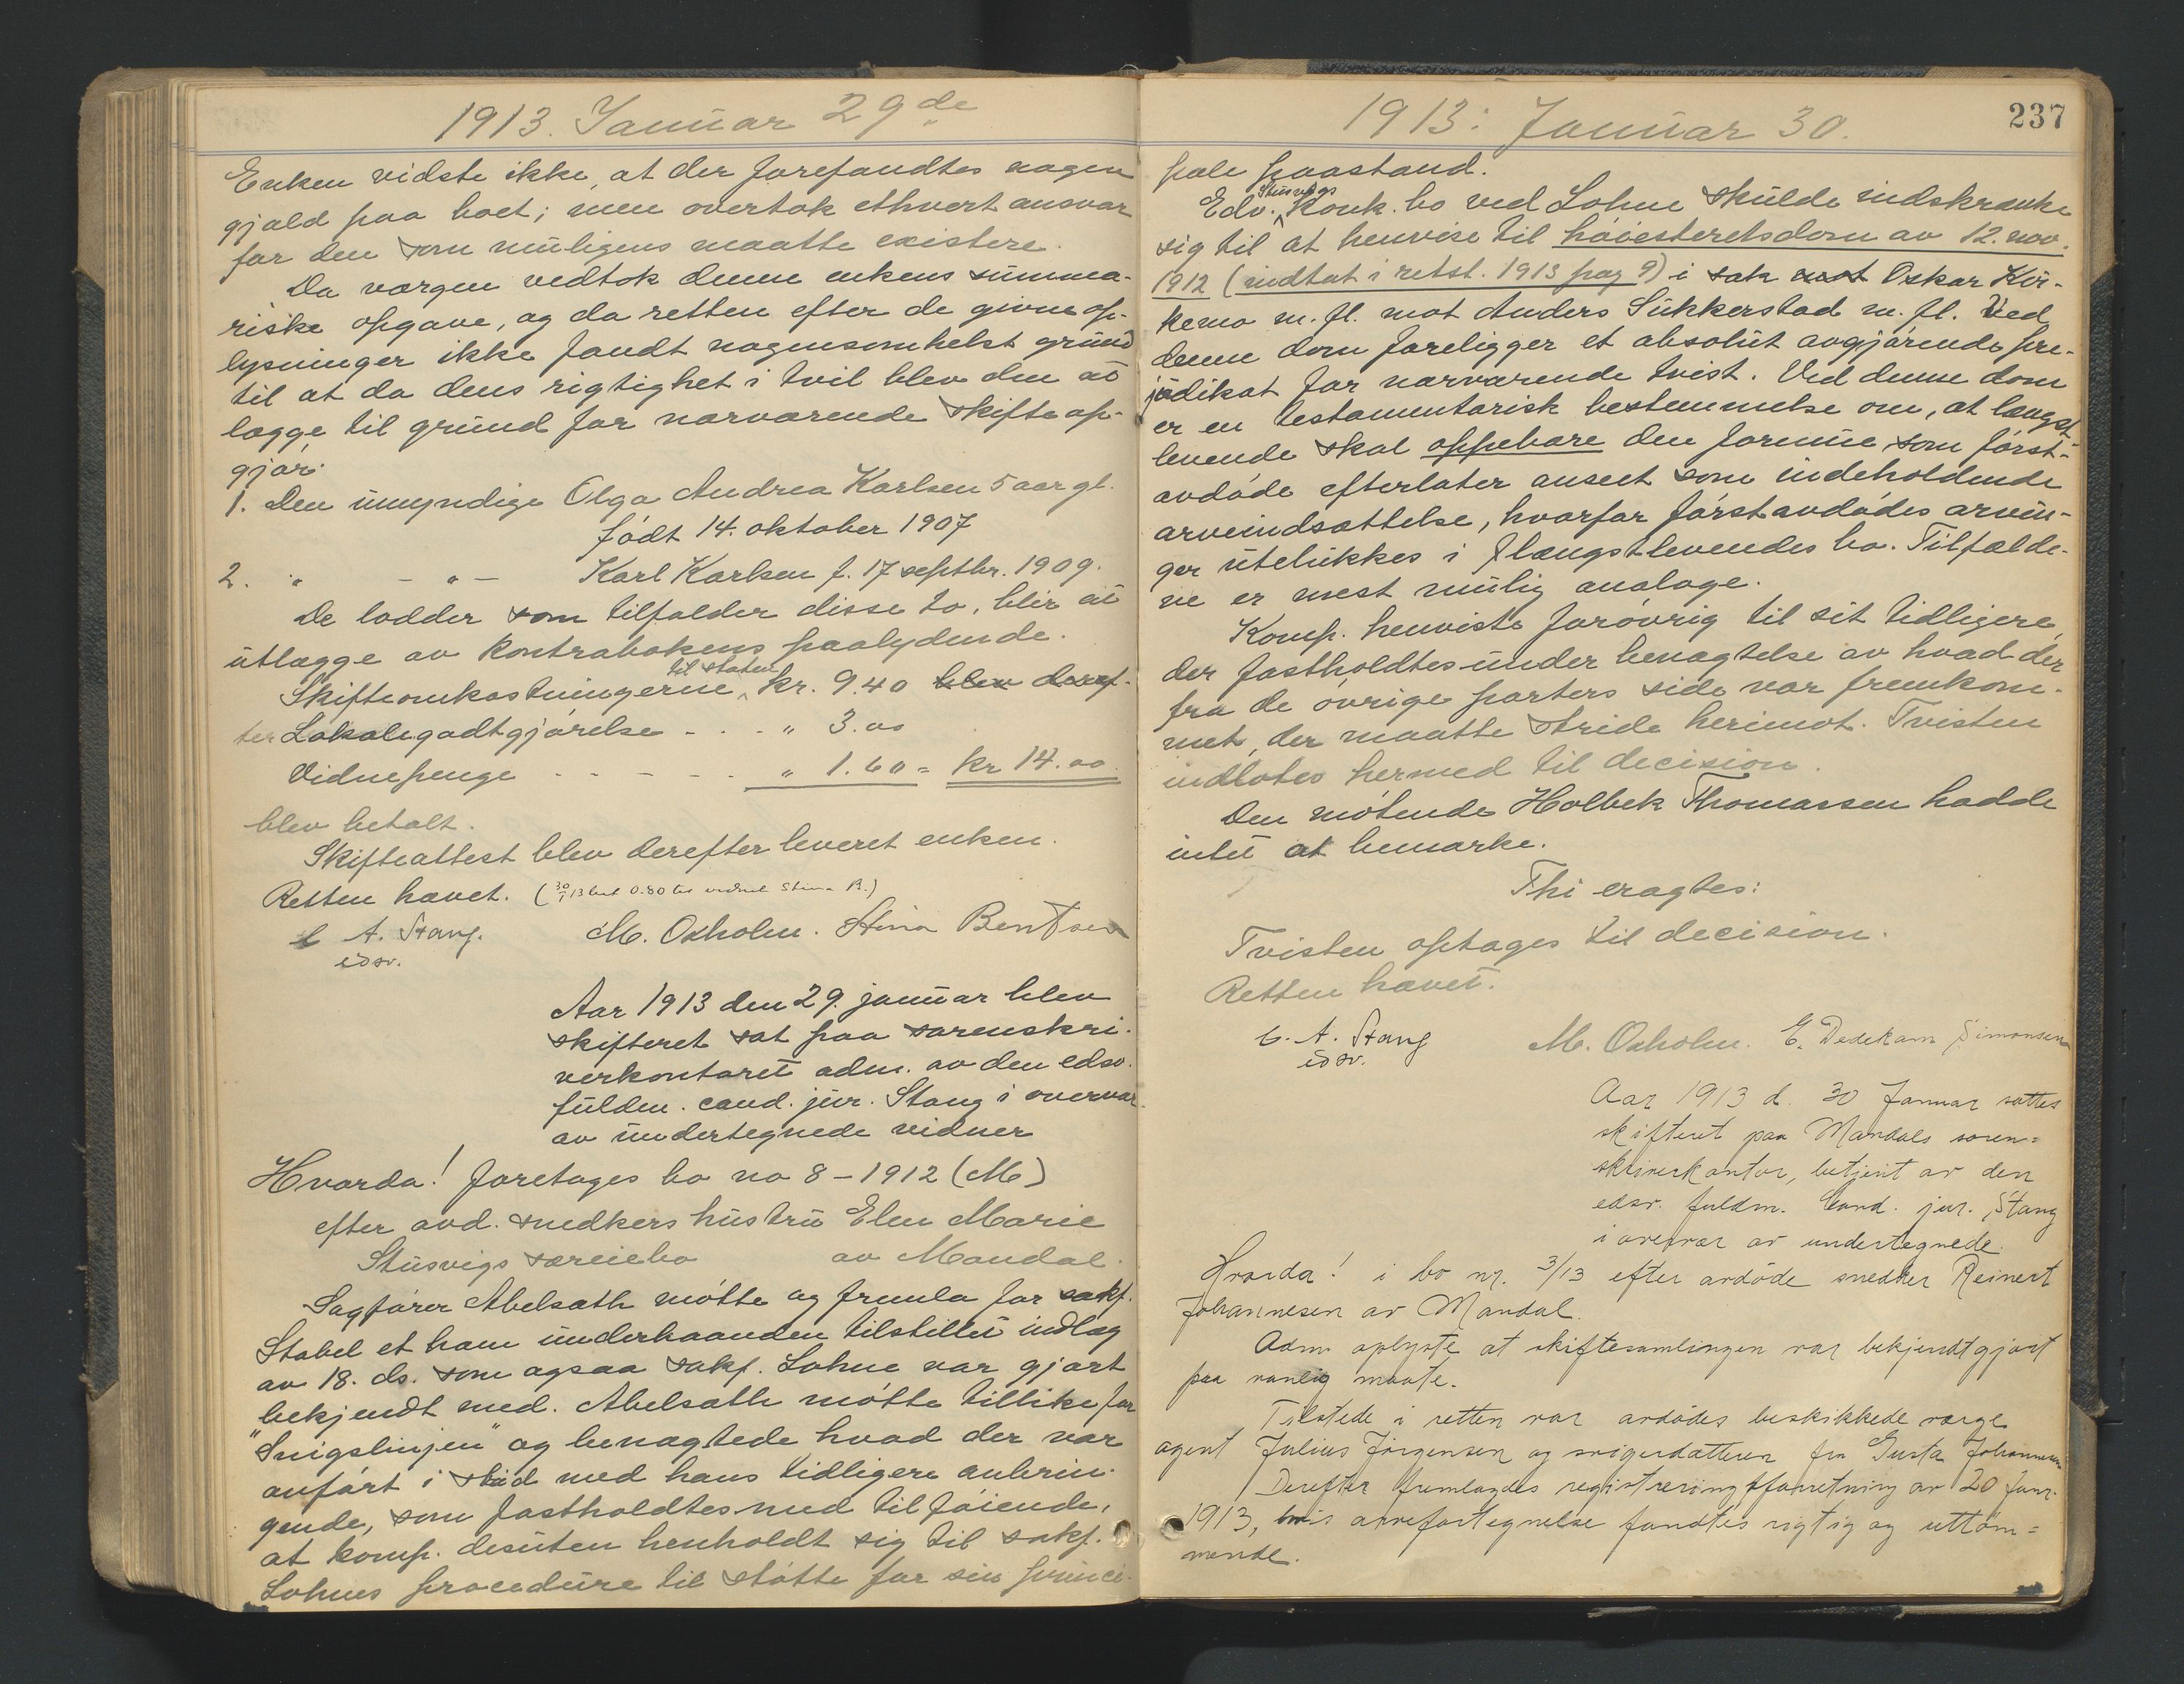 1913. Januar 29de
Enken vidste ikke, at der forefandtes nogen
gjæld paa boet; men overtok ethvert ansvar
for den som muligens maatte existere.
Da værgen vedtok denne enkens summa-
riske opgave, og da retten efter de givne op-
lysninger ikke fandt nogensomhelst grund
til at dra dens rigtighet i tvil blev den at
lægge til grund for nærværende skifteop-
gjør:
1. Den umyndige Olga Andrea Karlsen 5 aar gl.
født 14. oktober 1907
2. " - " - Karl Karlsen f. 17 septbr. 1909.
De lodder som tilfalder disse to, blir at
utlægge av kontrabokens paalydende.
Skifteomkostningerne til staten kr. 9.40 blev deref-
ter Lokalegodtgjørelse - . . - " 3.00
Vidnepenge - - - - - . " 1.60 = kr 14.00
blev betalt.
Skifteattest blev derefter leveret enken.
Retten hævet. (30/1 13 bet 0.80 til vidnet Stina B.)
C. A. Stang. M. Oxholm. Stina Bentsen
edsv.
Aar 1913 den 29. januar blev
skifteret sat paa sorenskri-
verkontoret adm. av den edsv.
fuldm. cand. jur. Stang i overvær
av undertegnede vidner
Hvorda! foretages bo no 8 - 1912 (M)
efter avd. snedkers hustru Elen Marie
Stusvigs særeiebo av Mandal.
Sagfører Abelsæth møtte og fremla for sakf.
Stabel et ham underhaanden tilstillet indlæg
av 18. ds. som ogsaa sakf. Lohne var gjort
bekjendt med. Abelsæth møtte tillike for
"Snigslinjen" og benægtede hvad der var
anført i strid med hans tidligere anbrin-
gende, som fastholdtes med tilføiende,
at komp. desuten henholdt sig til sakf.
Lohnes procedure til støtte for sin princi-
1913: Januar 30.
237
pale paastand.
Edv. Stusvigs konk. bo ved Lohne skulde indskrænke
sig til at henvise til høiesteretsdom av 12. nov.
1912 (indtat i retst. 1913 pag 9) i sak mot Oskar Kir-
kemo m. fl. mot Anders Sukkerstad m. fl. Ved
denne dom foreligger et absolut avgjørende pre-
judikat for nærværende tvist. Ved denne dom
er en testamentarisk bestemmelse om, at længst-
levende skal oppebære den formue som først-
avdøde efterlater anseet som indeholdende
arveindsættelse, hvorfor førstavdødes arvin-
ger utelukkes i længstlevendes bo. Tilfælde-
ne er mest mulig analoge.
Komp. henviste forøvrig til sit tidligere,
der fastholdtes under benægtelse av hvad der
fra de øvrige parters side var fremkom-
met, der maatte stride herimot. Tvisten
indlotes hermed til decision.
Den møtende Holbek Thomassen hadde
intet at bemerke.
Thi eragtes:
Tvisten optages til decision.
Retten hævet.
C. A. Stang M. Oxholm. E. Dedekam Simonsen
edsv.
Aar 1913 d. 30 Januar sattes
skifteret paa Mandals soren=
skriverkontor, betjent av den
edsv. fuldm. Cand. jur. Stang
i overvær av undertegnede.
Hvorda! i bo nr. 3/13 efter avdøde snedker Reinert
Johannesen av Mandal.
Adm. oplyste at skiftesamlingen var bekjendtgjort
paa vanlig maate.
Tilstede i retten var avdødes beskikkede værge
agent Julius Jörgensen og svigerdatteren fru Gusta Johannesen
Derefter fremlagdes registreringsforretning av 20 Janr.
1913, hvis arvefortegnelse fandtes rigtig og uttöm=
mende.